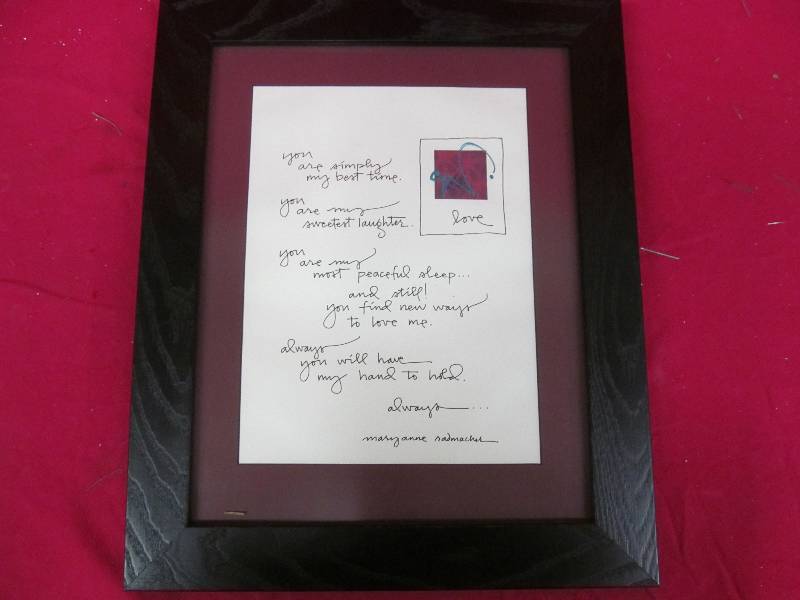 you
are simply
my best time.
love
you
are my
sweetest laughter.
you
are my
most peaceful sleep...
and still!
you find new ways
to love me.
always
you will have
my hand to hold.
always...
maryanne radmacher